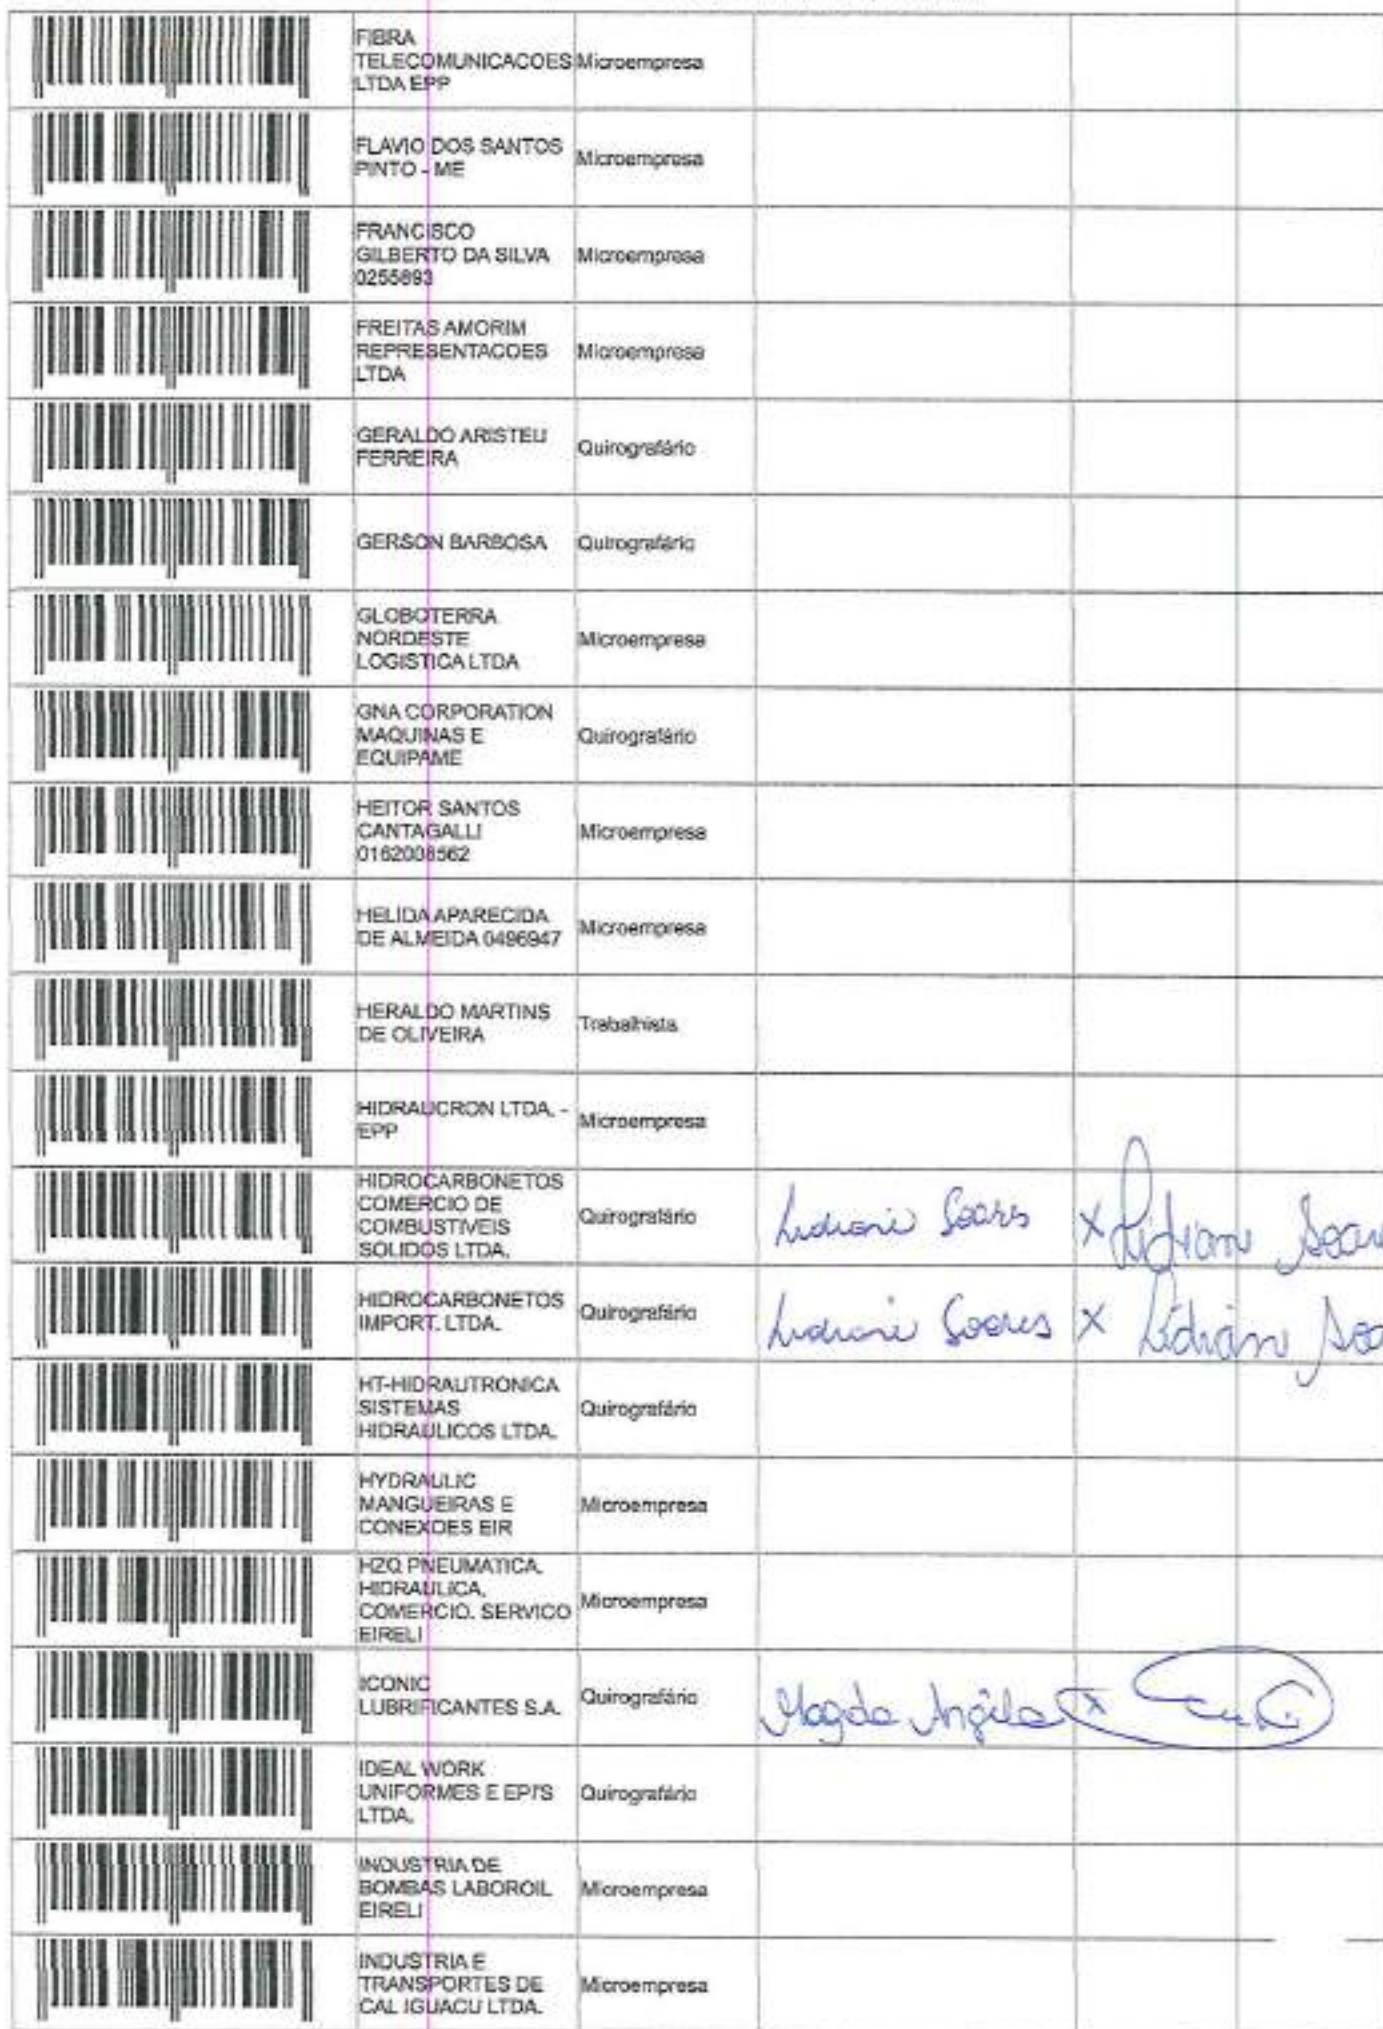 FIBRA
TELECOMUNICACOES
LTDA EPP
Microempresa
FLAVIO DOS SANTOS
PINTO - ME
Microempresa
FRANCISCO
GILBERTO DA SILVA
0255893
Microempresa
FREITAS AMORIM
REPRESENTACOES
LTDA
Microempresa
GERALDO ARISTEU
FERREIRA
Quirografário
GERSON BARBOSA
Quirografário
GLOBOTERRA
NORDESTE
LOGISTICA LTDA
Microempresa
GNA CORPORATION
MAQUINAS E
EQUIPAME
Quirografário
HEITOR SANTOS
CANTAGALLI
0162008562
Microempresa
HELIDA APARECIDA
DE ALMEIDA 0496947
Microempresa
HERALDO MARTINS
DE OLIVEIRA
Trabalhista
HIDRAUCRON LTDA. -
EPP
Microempresa
HIDROCARBONETOS
COMERCIO DE
COMBUSTIVEIS
SOLIDOS LTDA.
Quirografário
Lidiane Soares X Lidiane Soares
HIDROCARBONETOS
IMPORT. LTDA.
Quirografário
Lidiane Soares X Lidiane Soa
HT-HIDRAUTRONICA
SISTEMAS
HIDRAULICOS LTDA.
Quirografário
HYDRAULIC
MANGUEIRAS E
CONEXOES EIR
Microempresa
HZQ PNEUMATICA,
HIDRAULICA,
COMERCIO, SERVICO
EIRELI
Microempresa
ICONIC
LUBRIFICANTES S.A.
Quirografário
Magda Angela X
IDEAL WORK
UNIFORMES E EPI'S
LTDA.
Quirografário
INDUSTRIA DE
BOMBAS LABOROIL
EIRELI
Microempresa
INDUSTRIA E
TRANSPORTES DE
CAL IGUACU LTDA.
Microempresa